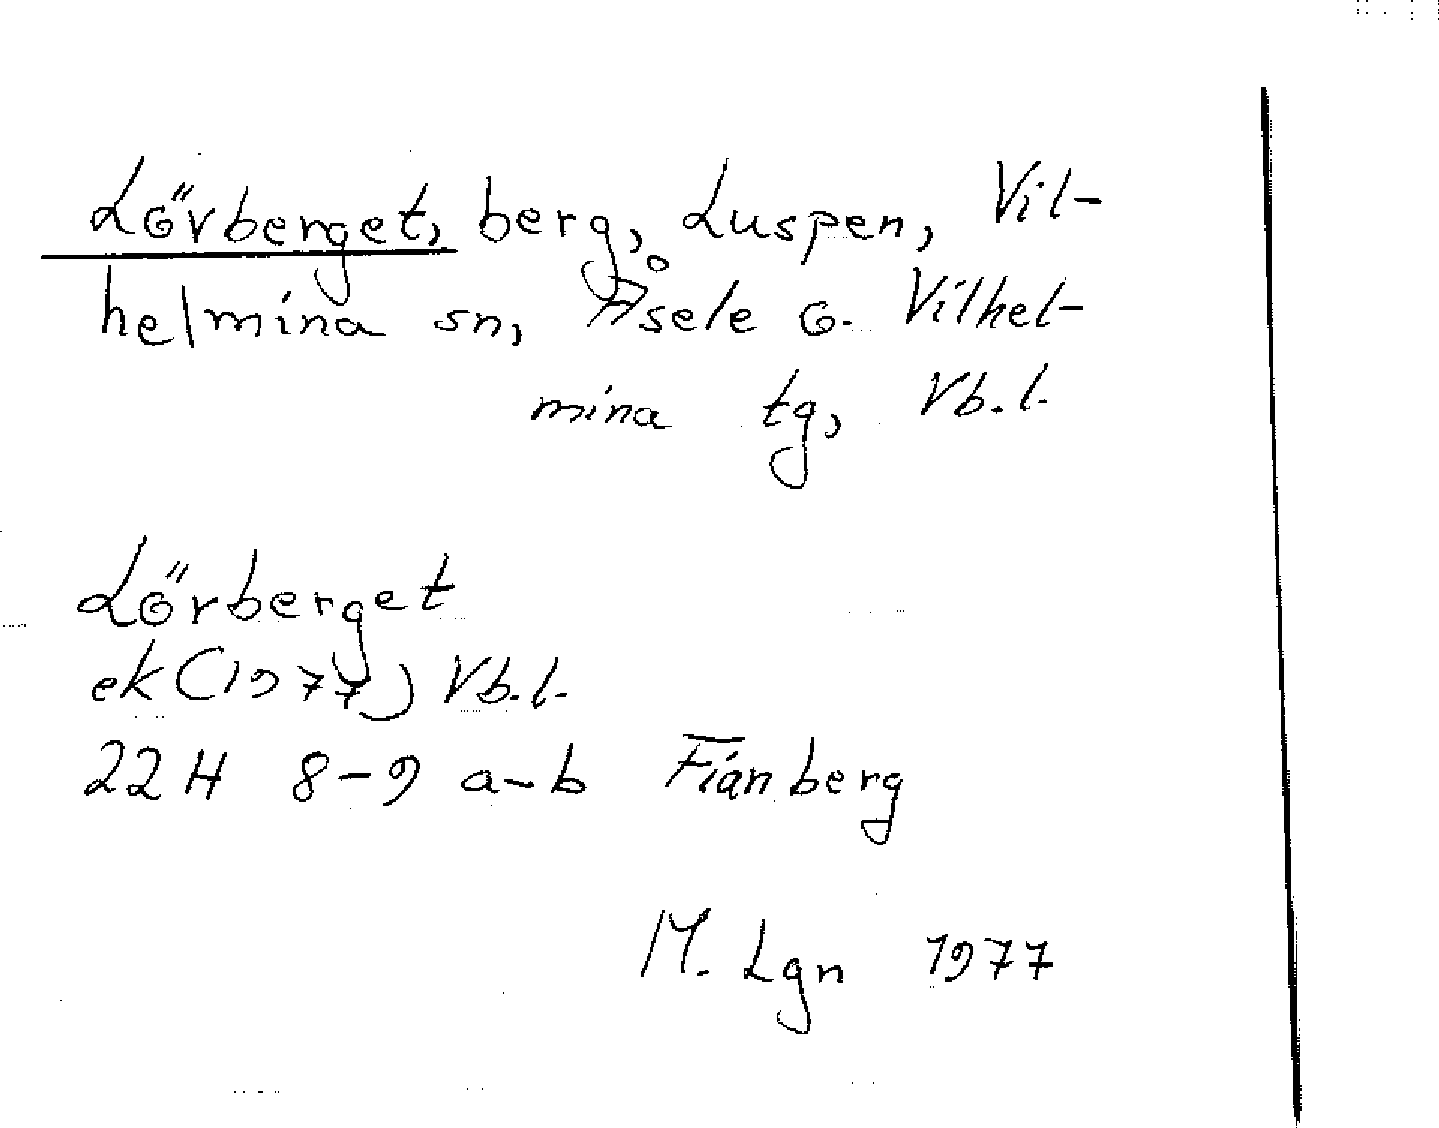 Lörberget, berg, Luspen, Vil-
helmina sn, Åsele o. Vilhel-
mina tg, Vb.l.
Lörberget
ek (1977) Vb.l.
22H 8-9 a-b Fianberg
M. Lgn 1977